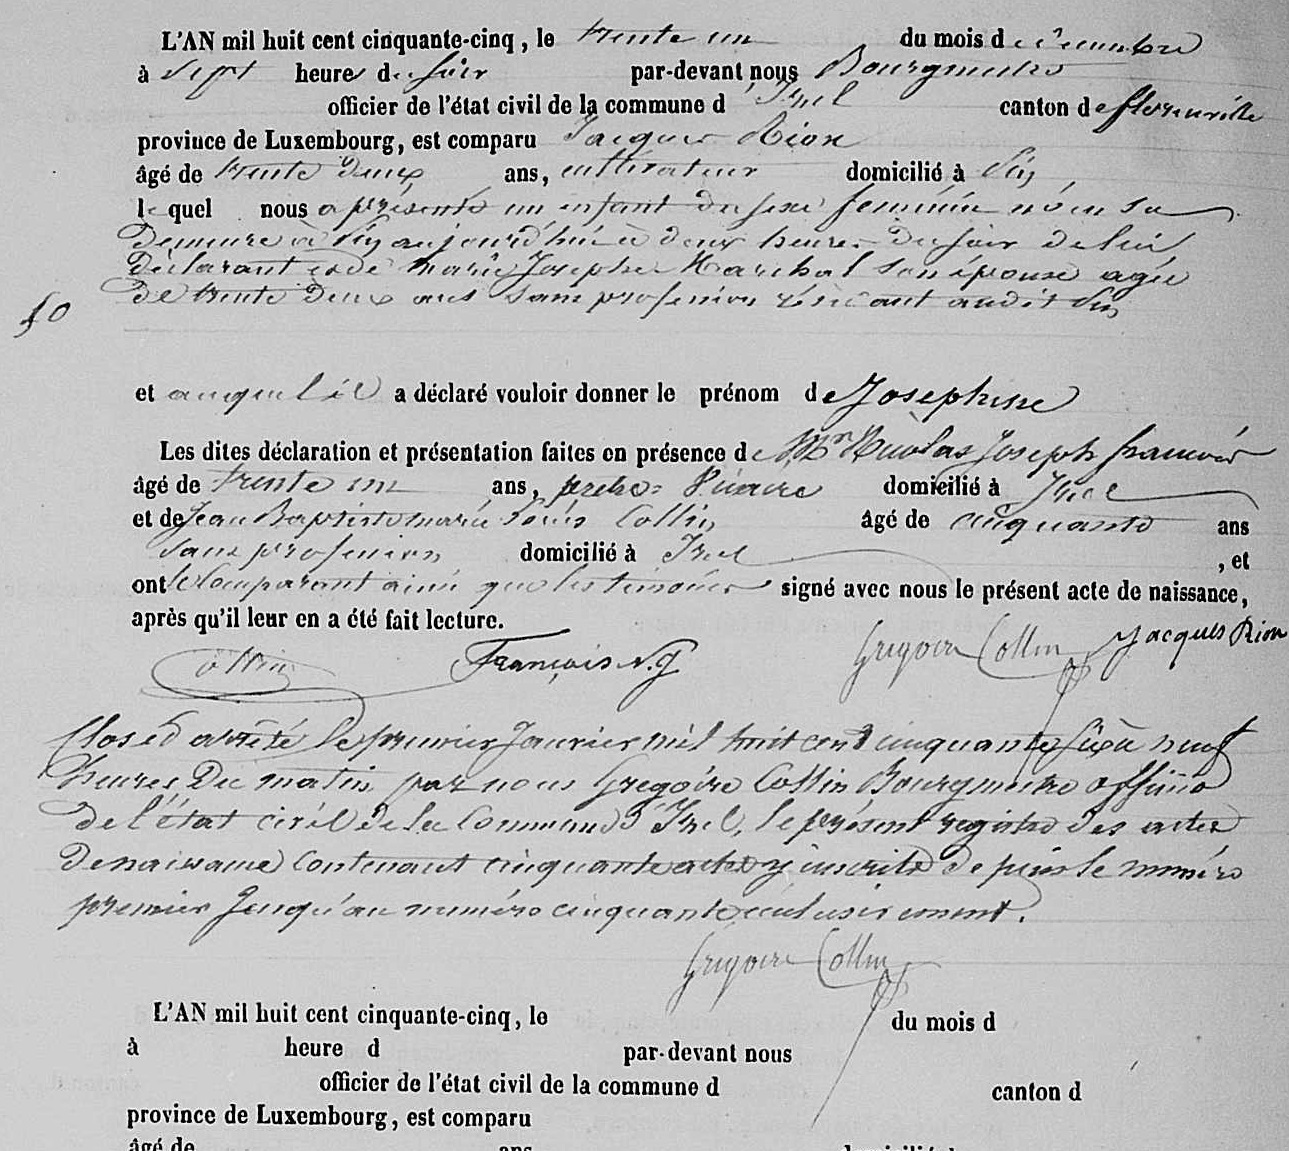 L'AN mil huit cent cinquante-cinq, le trente un du mois de Décembre
à sept heures du soir par-devant nous Bourgmestre
officier de l'état civil de la commune d'Izel canton de florenville
province de Luxembourg, est comparu Jacques Rion
âgé de trente deux ans, cultivateur domicilié à Pin,
lequel nous a présenté un enfant du sexe féminin né en sa
demeure à Pin aujourd'hui à deux heures du soir de lui
déclarant et de Marie Josephe Marchal son épouse agée
de trente deux ans sans profession résidant audit Pin
50
et auquel il a déclaré vouloir donner le prénom de Josephine
Les dites déclaration et présentation faites en présence de Mr Nicolas Joseph françois
âgé de trente un ans, prêtre vicaire domicilié à Izel
et de Jean Baptiste marie Louis Collin âgé de cinquante ans
sans profession domicilié à Izel, et
ont le comparant ainsi que les témoins signé avec nous le présent acte de naissance,
après qu'il leur en a été fait lecture.
Collin François N.J Grégoire Collin Jacques Rion
Clos et arrêté le premier Janvier mil huit cent cinquante six à neuf
heures du matin par nous Grégoire Collin Bourgmestre officier
de l'état civil de la Commune d'Izel, le présent registre des actes
de naissance contenant cinquante actes y inscrits depuis le numéro
premier jusqu'au numéro cinquante inclusivement.
Grégoire Collin
L'AN mil huit cent cinquante-cinq, le du mois d
à heure d par-devant nous
officier de l'état civil de la commune d canton d
province de Luxembourg, est comparu
âgé de ans domicilié à